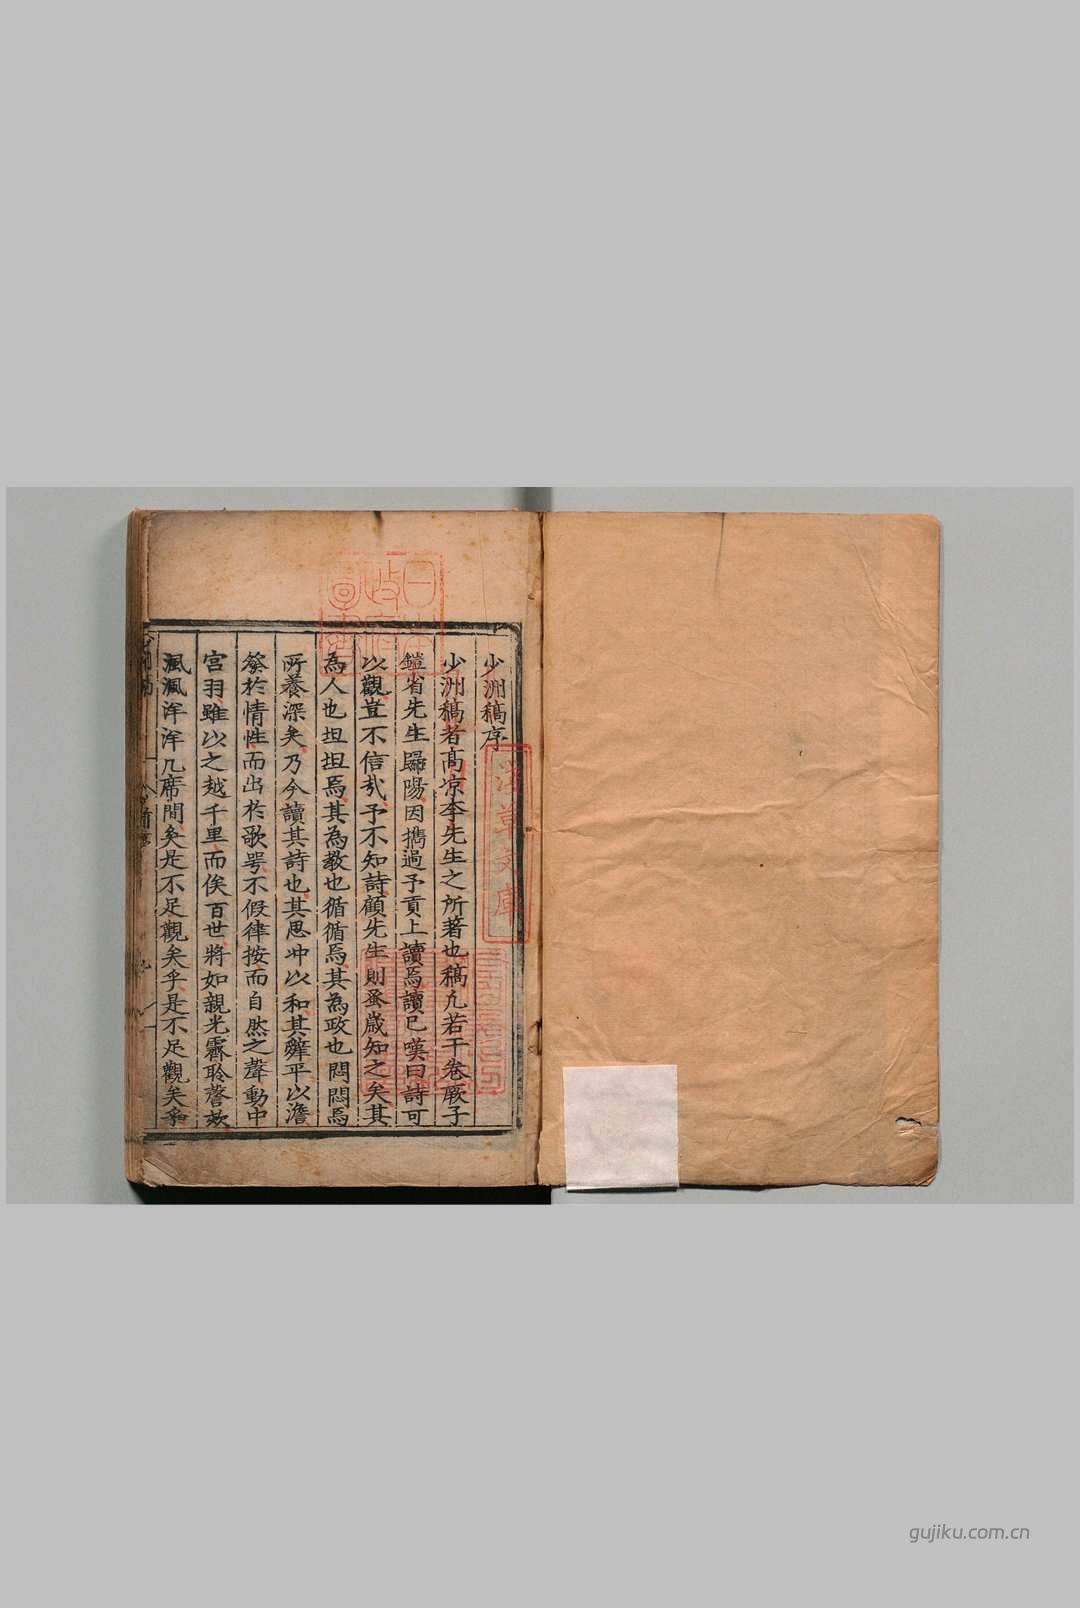 少洲稿序
少洲稿者高凉李先生之所著也稿凡若干卷厥子
鎧省先生歸陽因攜過予貢上讀焉讀已嘆曰詩可
以觀豈不信哉予不知詩顧先生則蚤歲知之矣其
為人也坦坦焉其為教也循循焉其為政也悶悶焉
所養深矣乃今讀其詩也其思冲以和其辭平以澹
發於情性而出於歌咢不假律按而自然之聲動中
宮羽雖以之越千里而俟百世將如親光霽聆謦欬
渢渢洋洋几席間矣是不足觀矣乎是不足觀矣乎
日本政府圖書
淺草文庫
gujiku.com.cn